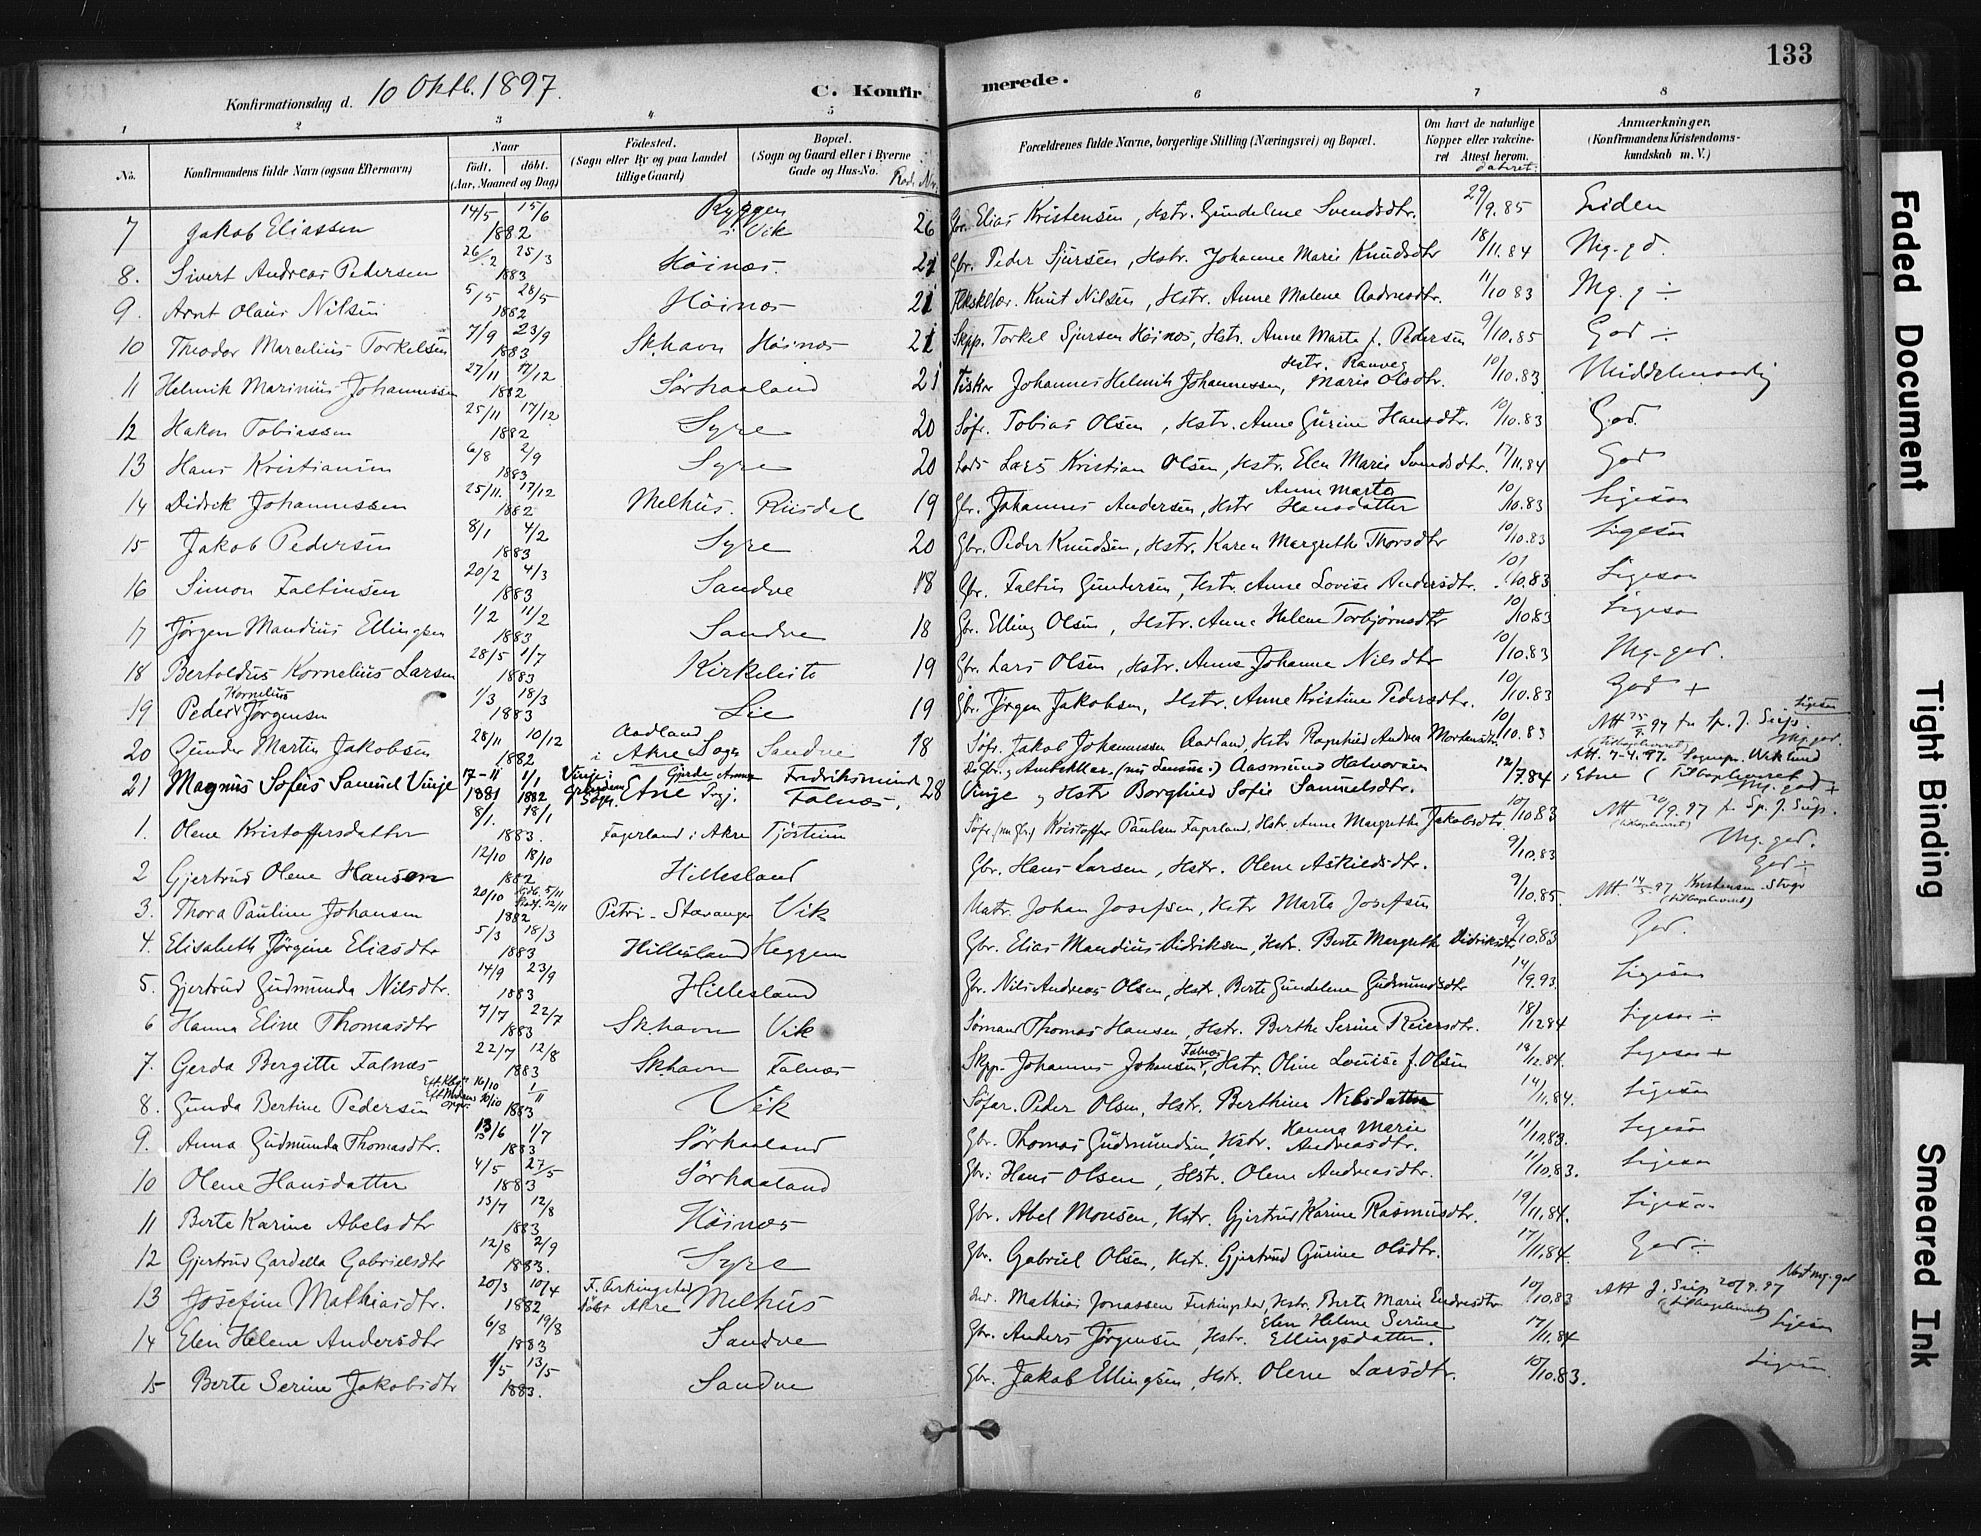 133
Konfirmationsdag d. 10 Oktb. 1897. C. Konfirmerede.
1 2 3 4 5 6 7 8
No. Konfirmandens fulde Navn (ogsaa Efternavn) Naar født, døbt. (Aar, Maaned og Dag) Fødested. (Sogn eller By og paa Landet tillige Gaard) Bopæl. (Sogn og Gaard eller i Byerne Gade og Hus-No. Rod. Nr. Forældrenes fulde Navne, borgerlige Stilling (Næringsvei) og Bopæl. Om havt de naturlige Kopper eller vakcineret Attest herom. dateret: Anmærkninger. (Konfirmandens Kristendomskundskab m. V.)
7 Jakob Eliassen 14/5 15/6 1882 Ryggen i Vik 26 Gbr. Elias Kristensen, Hstr. Gundelene Svendsdtr. 29/9.85 Liden
8. Sivert Andreas Pedersen 26/2 25/3 1883 Høinæs. 21 Gbr. Peder Sjursen, Hstr. Johanne Marie Knudsdtr 18/11.84 Mg. gd.
9. Arnt Olaus Nilsen 5/5 28/5 1882 Høinæs 21 Knut Nilsen, Hstr. Anne Malene Aadnesdtr. 11/10 83 Mg. g ÷
10 Theodor Marcelius Torkelsen 7/9 23/9 1883 Skhavn Høinæs 21 Skpp. Torkel Sjursen Høinæs, Hstr. Anne Marta f. Pedersen 9/10.85 God ÷
11 Helmik Marinius Johannessen 27/11 17/12 1882 Sørhaaland 21 Fisker Johannes Helmik Johannessen, Hstr. Ranveg Marie Olsdtr. 10/10.83 Middelmaadig
12 Hakon Tobiassen 25/11 17/12 1882 Syre 20 Søfr. Tobias Olsen, Hstr. Anne Gurine Hansdtr. 10/10.83 God.
13 Hans Kristiansen 6/8 2/9 1883 Syre 20 Lods Lars Kristian Olsen, Hstr. Elen Marie Svendsdtr. 17/11.84 God
14 Didrik Johannessen 25/11. 17/12 1882 Melhus. Risdal 19 Gbr. Johannes Andersen, Hstr Anne Marta Hansdatter 10/10.83 Ligesaa
15 Jakob Pedersen 8/1 4/2 1883 Syre 20 Gbr. Peder Knudsen, Hstr. Karen Margrethe Thorsdtr 10/10.83 Ligesaa
16 Simon Faltinsen 20/2 4/3 1883 Sandve 18 Gbr. Faltin Gundersen, Hstr. Anne Lovise Andersdtr. 10/10.83 Ligesaa
17 Jørgen Mandius Ellingsen 1/2 11/2 1883 Sandve 18 Gbr. Elling Olsen, Hstr. Anne Helene Torbjørnsdtr 10/10.83 Ligesaa
18 Bertoldus Kornelius Larsen 28/5 1/7 1883 Kirkeleite 19 Gbr. Lars Olsen, Hstr. Anne Johanne Nilsdtr 10/10.83 Mg. god.
19 Peder Kornelius Jørgensen 1/3 18/3 1883 Lie 19 Gbr. Jørgen Jakobsen, Hstr. Anne Kristine Pedersdtr. 10/10.83 God +
20 Gunder Martin Jakobsen 28/11 10/12 1882 Aadland i Akre Sogn Sandve 18 Søfr. Jakob Johannessen Aadland, Hstr Ragnhild Andrea Mortensdtr. 10/10.83 Ligesaa
21 Magnus Sofus Samuel Vinje 17-11 1881 1/1 1882 Fredriksminde Falnæs. 28 Aasmund Halvorsen Vinje, Hstr Borghild Sofie Samuelsdtr. 12/7.84 Att. 7-4.97. Sognepr. Wiklund i Etne (tilbageleveret) Mg. god +
1. Olene Kristoffersdatter 8/1. 18/1 1883. Fagerland i Akre Tjøstem Søfr. Kristoffer Paulsen Fagerland, Hstr. Anne Margrethe Jakobsdtr. 10/10.83 Att 20/9.97 Mg. god.
2 Gjertrud Olene Hansen 12/10 18/10 1882 Hillesland Gbr. Hans Larsen, Hstr. Olene Askildsdtr. 9/10.83 God ÷
3. Thora Pauline Johansen 20/10 5/11 12/11 1882 Petri-Stavanger Vik Matr. Johan Josefsen, Hstr Marta Josefsen 9/10.85. Att. 14/5.97 Kristensen Stvgr (tilbageleveret)
4. Elisabeth Jørgine Eliasdtr 5/3 18/3 1883 Hillesland Heggem Gbr. Elias Mandius Didriksen, Hstr. Berte Margrethe Didriksdtr. 9/10.83 God.
5. Gjertrud Gudmunda Nilsdtr. 14/9 23/9 1883 Hillesland Gbr. Nils Andreas Olsen, Hstr. Berte Gundelene Gudmundsdtr 14/9.93. Ligesaa
6 Hanna Eline Thomasdtr 7/7 22/7 1883 Skhavn Vik Sømand Thomas Hansen, Hstr. Berthe Serine Reiersdtr. 18/12 84 Ligesaa ÷
7. Gerda Bergitte Falnæs 22/7 12/8 1883 Skhavn Falnæs Skpp. Johannes Johansen Falnæs, Hstr. Oline Louise f. Olsen 18/12.84. Ligesaa +
8. Gunda Bertine Pedersen 16/10 1/11 1883 Vik Søfar. Peder Olsen, Hstr. Berthine Nilsdatter 14/11.84. Ligesaa
9. Anna Gudmunda Thomasdtr. 13/6 1/7 1883 Sørhaaland Gbr. Thomas Gudmundsen, Hstr. Hanna Marie Andreasdtr. 11/10.83. Ligesaa
10 Olene Hansdatter 4/5 27/5 1883 Sørhaaland Gbr. Hans Olsen, Hstr. Olene Andreasdtr. 11/10.83. Ligesaa
11 Berte Karine Abelsdtr 13/7 12/8 1883. Høinæs Gbr. Abel Monsen, Hstr. Gjertrud Karine Rasmusdtr. 19/11.84. Ligesaa
12 Gjertrud Gardella Gabrielsdtr 12/8 2/9 1883. Syre Gbr. Gabriel Olsen, Hstr. Gjertrud Gurine Olsdtr. 17/11.84 God ÷
13 Josefine Mathiasdtr. 20/3 10/4 1882 F. Ferkingstad døbt Akre Melhus Mathias Jonassen Ferkingstad, Hstr. Berte Marie Endresdtr 10/10.83 Att 20/9.97 (tilbageleveret) Mg. god
14 Elen Helene Andersdtr 6/8 19/8 1883 Sandve Gbr. Anders Jørgensen, Hstr. Elen Helene Serine Ellingsdatter. 17/11.84 Ligesaa
15 Berte Serine Jakobsdtr 1/5 13/5 1883. Sandve Gbr. Jakob Ellingsen, Hstr. Olene Larsdtr. 10/10.83. Ligesaa
Faded Document
Tight Binding
Smeared Ink